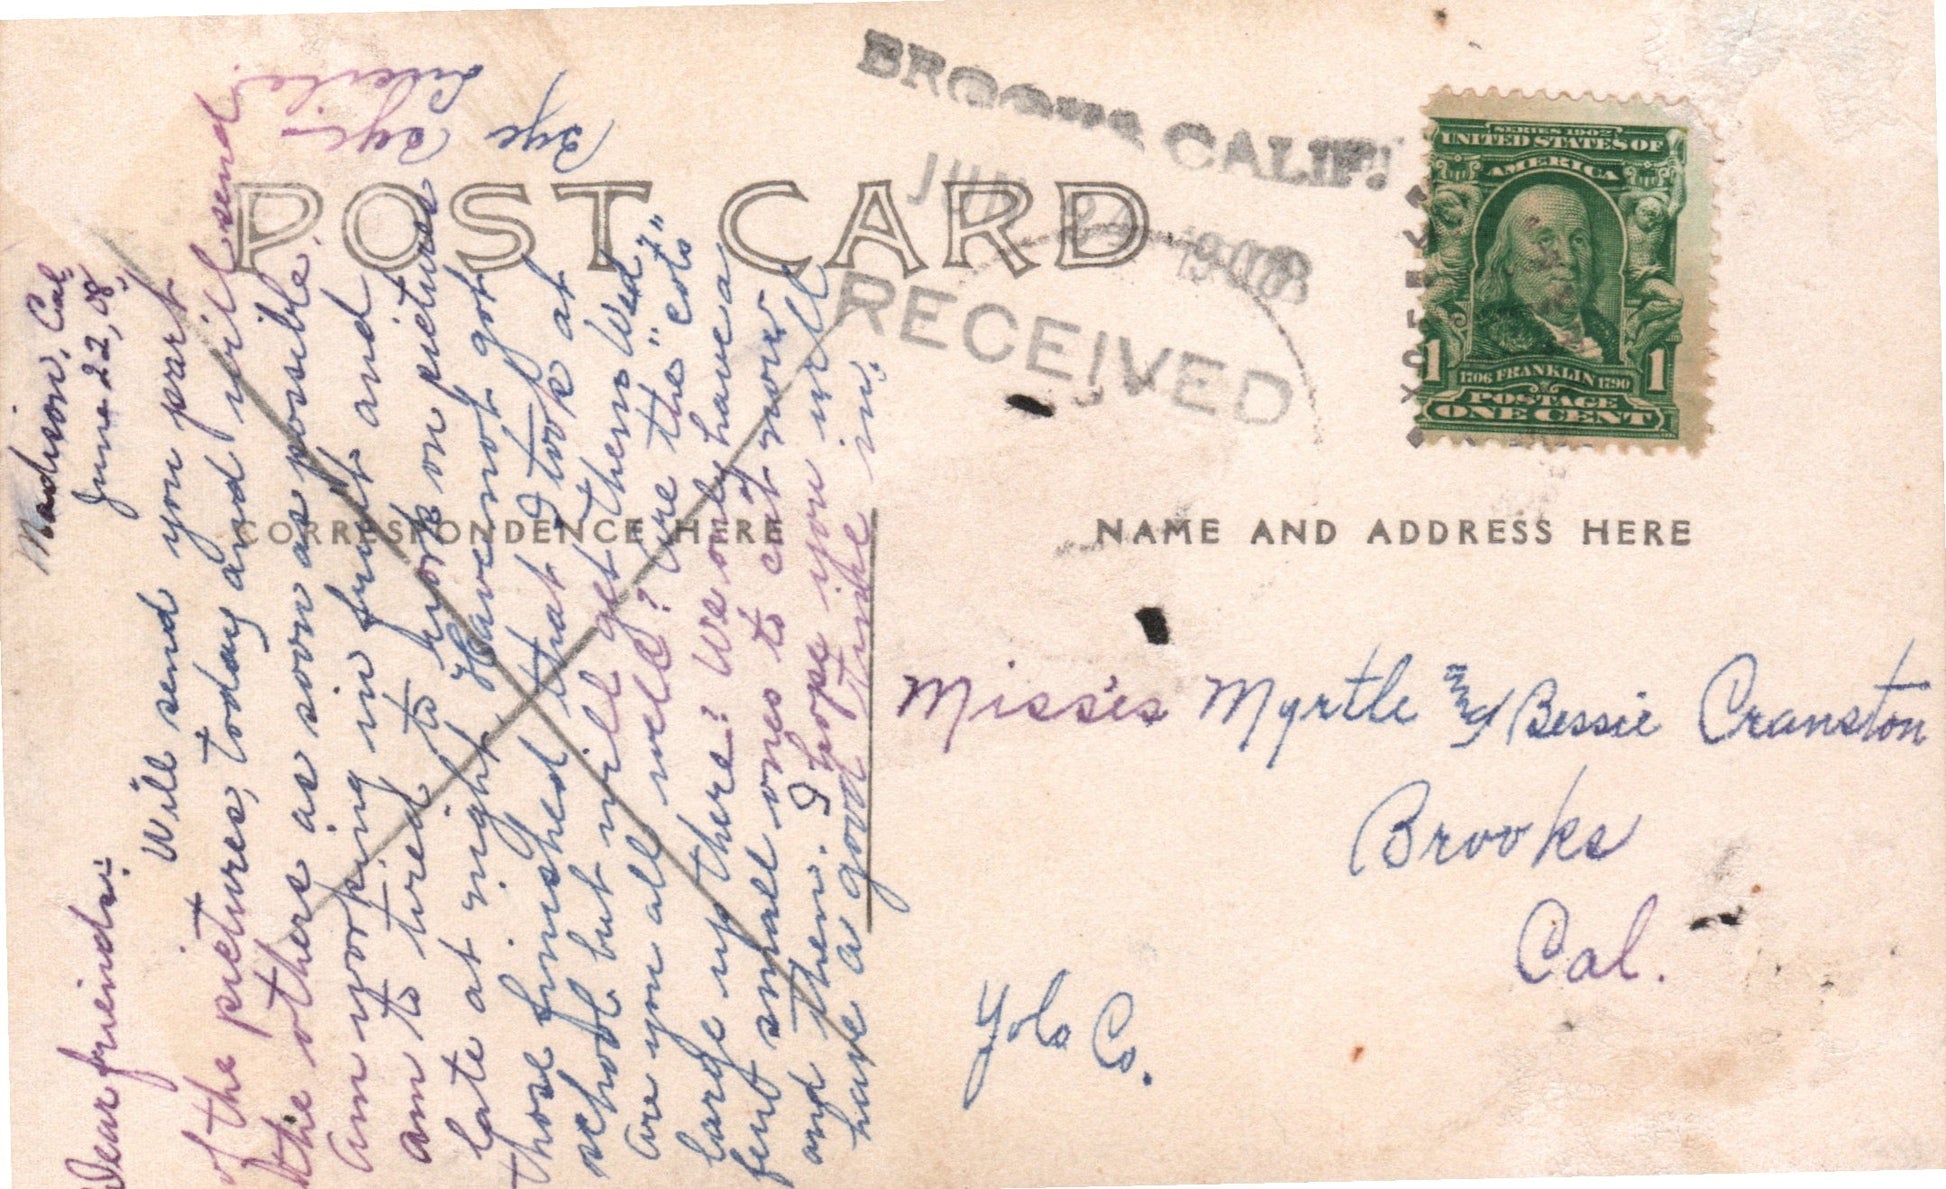 POST CARD
CORRESPONDENCE HERE
NAME AND ADDRESS HERE
BROOKS CALIF.
JUN 24 1908
RECEIVED
SERIES 1902
UNITED STATES OF
AMERICA
1706 FRANKLIN 1790
1 1
POSTAGE
ONE CENT
Madison, Cal,
June 22, 08,
Dear friends:
Will send you part
of the pictures, today and will send
the others as soon as possible.
Am working in fruit and
am to tired to work on pictures
late at night. Have not got
those finished that I took at
school but will get them Wed.
Are you all well? Are the "cots"
large up there? We only have a
few small ones to cut now
and then. I hope you will
have a good time in
Misses Myrtle and Bessie Cranston
Brooks
Cal.
Yolo Co.